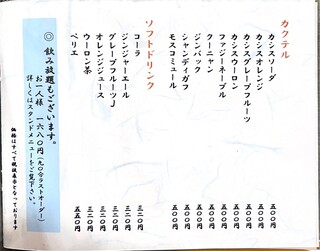 カクテル
カシスソーダ 五〇〇円
カシスオレンジ 五〇〇円
カシスグレープフルーツ 五〇〇円
カシスウーロン 五〇〇円
ファジーネーブル 五〇〇円
クーニャン 五〇〇円
ジンバック 五〇〇円
シャンディガフ 五〇〇円
モスコミュール 五〇〇円
ソフトドリンク
コーラ 三二〇円
ジンジャーエール 三二〇円
グレープフルーツJ 三二〇円
オレンジジュース 三二〇円
ウーロン茶 三二〇円
ペリエ 五五〇円
◎飲み放題もございます。
お一人様 一六八〇円(九〇分ラストオーダー)
詳しくはスタンドメニューをご覧下さい。
価格はすべて税抜表示となっております